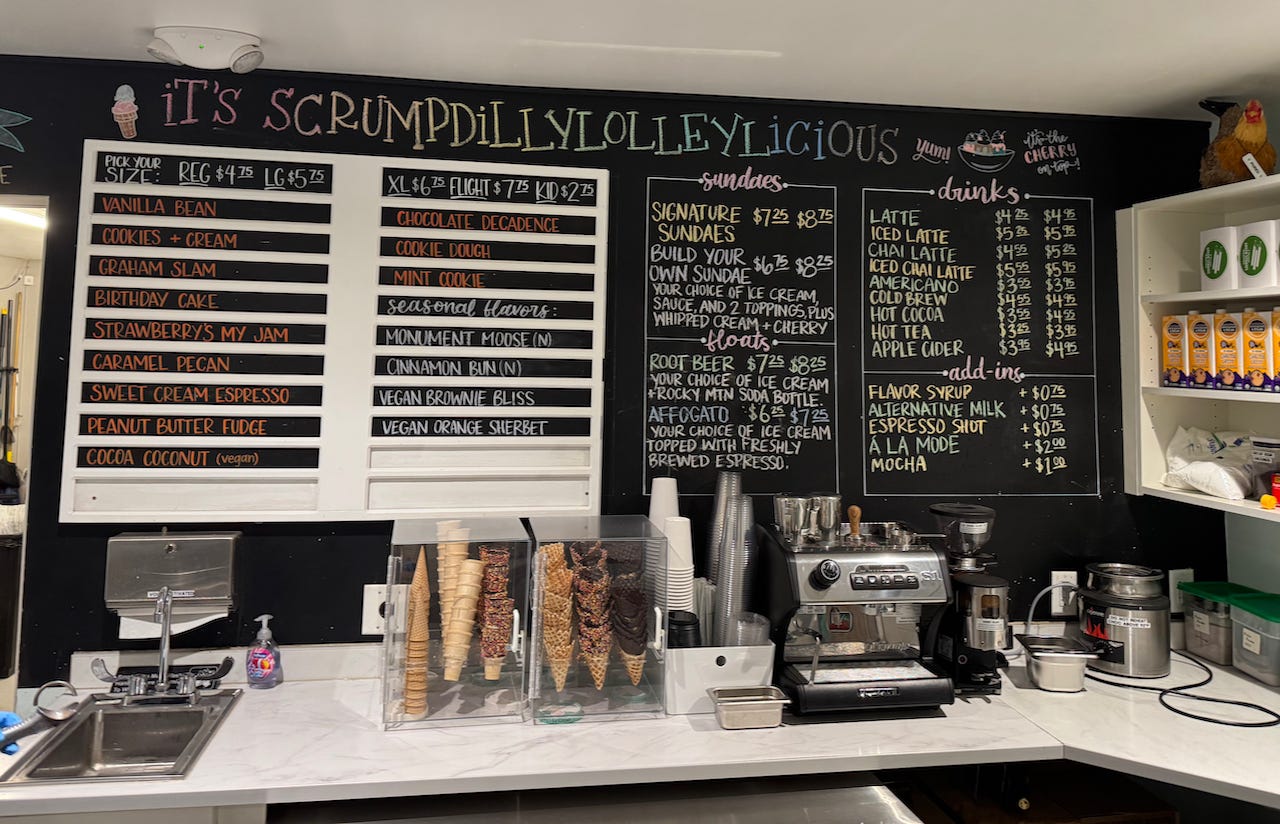 iT'S SCRUMPDiLLYLOLLEYLiCiOUS
YUM!
it's the
CHERRY
on top!
PICK YOUR
SIZE: REG $4.75 LG $5.75
VANILLA BEAN
COOKIES + CREAM
GRAHAM SLAM
BIRTHDAY CAKE
STRAWBERRY'S MY JAM
CARAMEL PECAN
SWEET CREAM ESPRESSO
PEANUT BUTTER FUDGE
COCOA COCONUT (vegan)
XL $6.75 FLIGHT $7.75 KID $2.75
CHOCOLATE DECADENCE
COOKIE DOUGH
MINT COOKIE
seasonal flavors:
MONUMENT MOOSE (N)
CINNAMON BUN (N)
VEGAN BROWNIE BLISS
VEGAN ORANGE SHERBET
sundaes
SIGNATURE $7.25 $8.75
SUNDAES
BUILD YOUR
OWN SUNDAE $6.75 $8.25
YOUR CHOICE OF ICE CREAM,
SAUCE, AND 2 TOPPINGS, PLUS
WHIPPED CREAM + CHERRY
floats
ROOT BEER $7.25 $8.25
YOUR CHOICE OF ICE CREAM
+ROCKY MTN SODA BOTTLE.
AFFOGATO $6.25 $7.25
YOUR CHOICE OF ICE CREAM
TOPPED WITH FRESHLY
BREWED ESPRESSO.
drinks
LATTE $4.25 $4.95
ICED LATTE $5.25 $5.95
CHAI LATTE $4.55 $5.25
ICED CHAI LATTE $5.55 $5.95
AMERICANO $3.55 $3.95
COLD BREW $4.55 $4.95
HOT COCOA $3.95 $4.55
HOT TEA $3.25 $3.95
APPLE CIDER $3.95 $4.95
add-ins
FLAVOR SYRUP +$0.75
ALTERNATIVE MILK +$0.75
ESPRESSO SHOT +$0.75
Á LA MODE +$2.00
MOCHA +$1.00